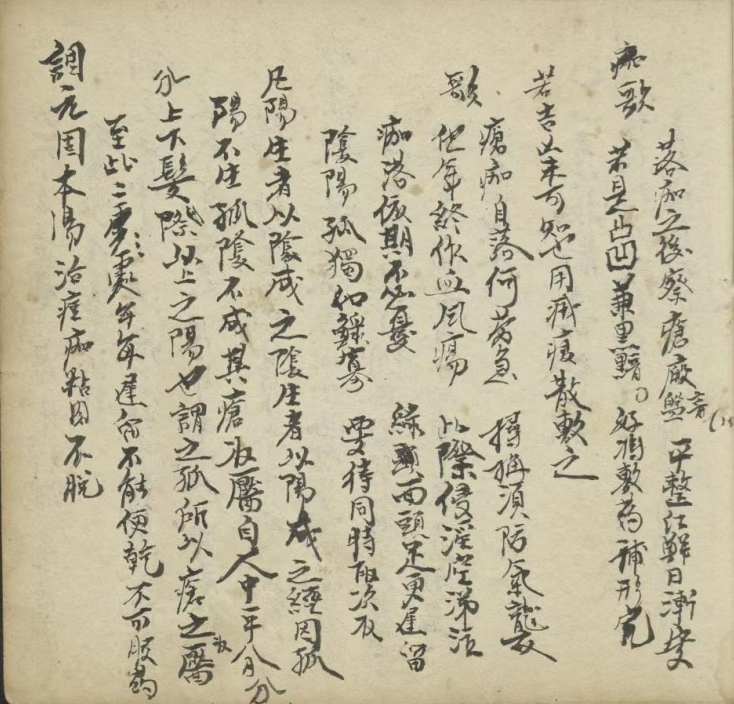 痂歌
落痂之後察瘡廠盤 平整紅鮮日漸安
若是凸凹兼黑黯 好將敷藥補形完
若吉凶未可知也用滅瘢散敷之
瘡痂自落何勞急 搔搊須防氣襲
歌 但年終作血風瘍 此際侵淫空涕泣
痂落依期不必憂 綠頭面頭足更遲留
陰陽孤獨如鰥寡 要待同時取次收
凡陽生者以陰成之陰生者以陽成之經因孤
陽不生孤陰不成其瘡收靨自人中平分
分上下髮際以上之陽也謂之孤所以瘡之收靨
至此二處每每遲留不能便乾不可服藥
調元固本湯治痘痂黏因不脫